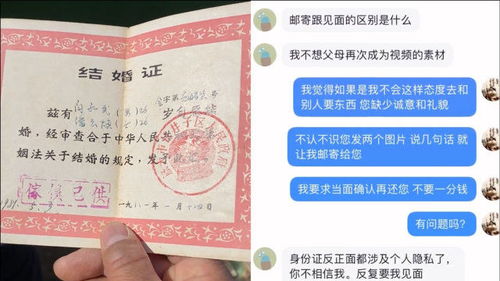 结婚证
兹有
岁自愿结
婚，经审查合于中华人民
姻法关于结婚的规定，发
已供
一九八一年一月
邮寄跟见面的区别是什么
我不想父母再次成为视频的素材
我觉得如果是我不会这样态度去和
别人要东西 您缺少诚意和礼貌
不认不识您发两个图片 说几句话 就
让我邮寄给您
我要求当面确认再还您 不要一分钱
有问题吗?
身份证反正面都涉及个人隐私了，
你不相信我。反复要我见面